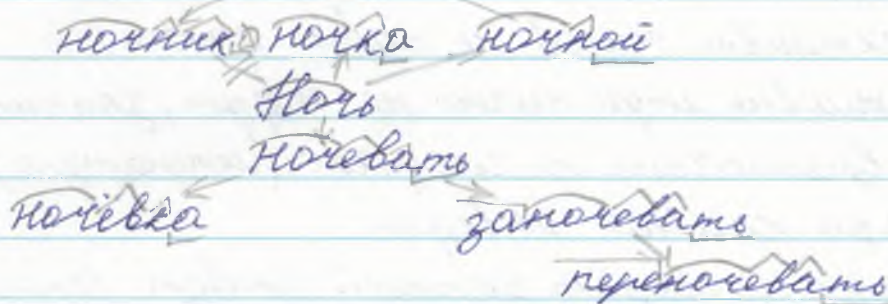 ночник ночка ночной
Ночь
ночевать
ночёвка заночевать
переночевать